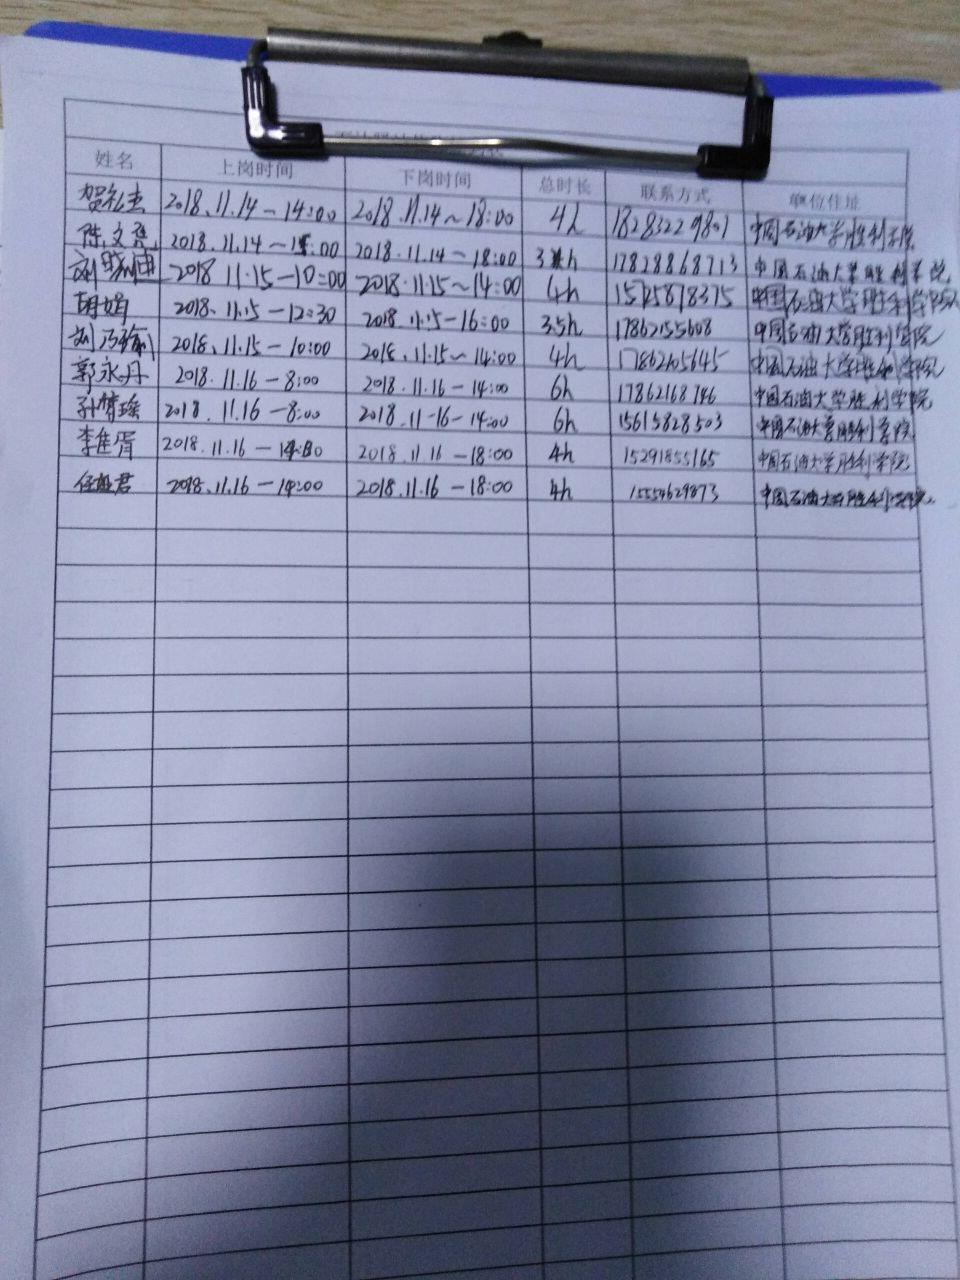 姓名 上岗时间 下岗时间 总时长 联系方式 单位住址
贺礼杰 2018.11.14—14:00 2018.11.14～18:00 4h 18283229801 中国石油大学胜利学院
陈文 2018.11.14～15:00 2018.11.14—18:00 3h 17828868713 中国石油大学胜利学院
刘 2018 11.15—10:00 2018.11.15～14:00 4h 15725878375 中国石油大学胜利学院
胡娟 2018.11.15—12:30 2018.11.15—16:00 3.5h 17862155608 中国石油大学胜利学院
刘乃 2018.11.15—10:00 2018.11.15～14:00 4h 17862105645 中国石油大学胜利学院
郭永丹 2018.11.16—8:00 2018.11.16—14:00 6h 17862168746 中国石油大学胜利学院
孙倩瑶 2018.11.16—8:00 2018.11-16-14:00 6h 15615828503 中国石油大学胜利学院
李佳胥 2018.11.16—14:00 2018.11.16—18:00 4h 15291855165 中国石油大学胜利学院
任君 2018.11.16—14:00 2018.11.16—18:00 4h 中国石油大学胜利学院